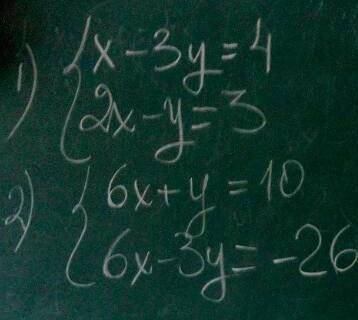 1) { x - 3y = 4
2x - y = 3
2) { 6x + y = 10
6x - 3y = -26